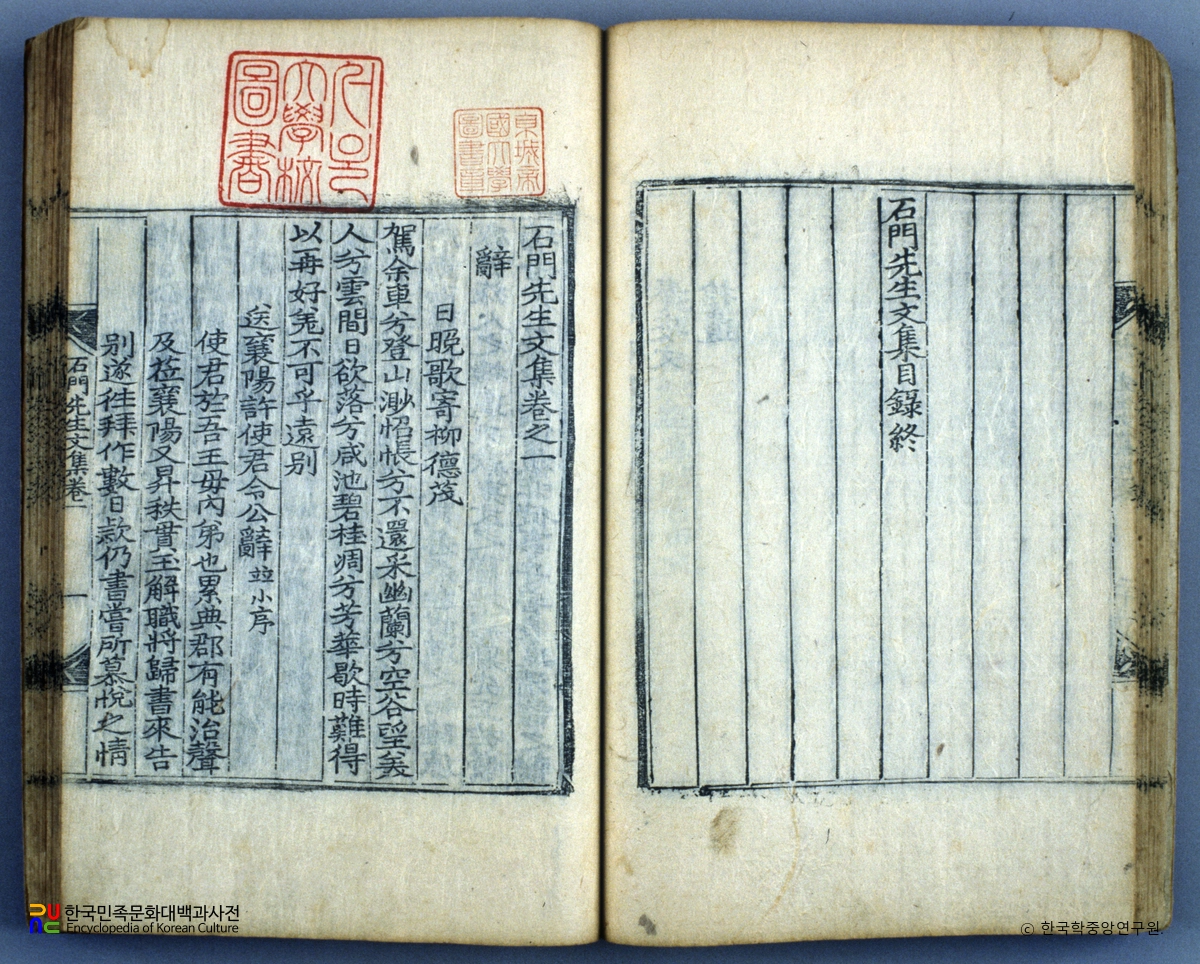 石門先生文集目錄終
石門先生文集卷之一
辭
日晩歌寄柳德茂
駕余車兮登山渺怊悵兮不還采幽蘭兮空谷望美
人兮雲間日欲落兮咸池碧桂凋兮芳華歇時難得
以再好羌不可乎遠別
送襄陽許使君令公辭 並小序
使君於吾王母內弟也累典郡有能治聲
及莅襄陽又昇秩
解職將歸書來告
別遂往拜作數日款仍書嘗所慕悅之情
石門先生文集卷一
一
서울
大學校
圖書
京城帝
國大學
圖書章
한국민족문화대백과사전
Encyclopedia of Korean Culture
ⓒ 한국학중앙연구원.